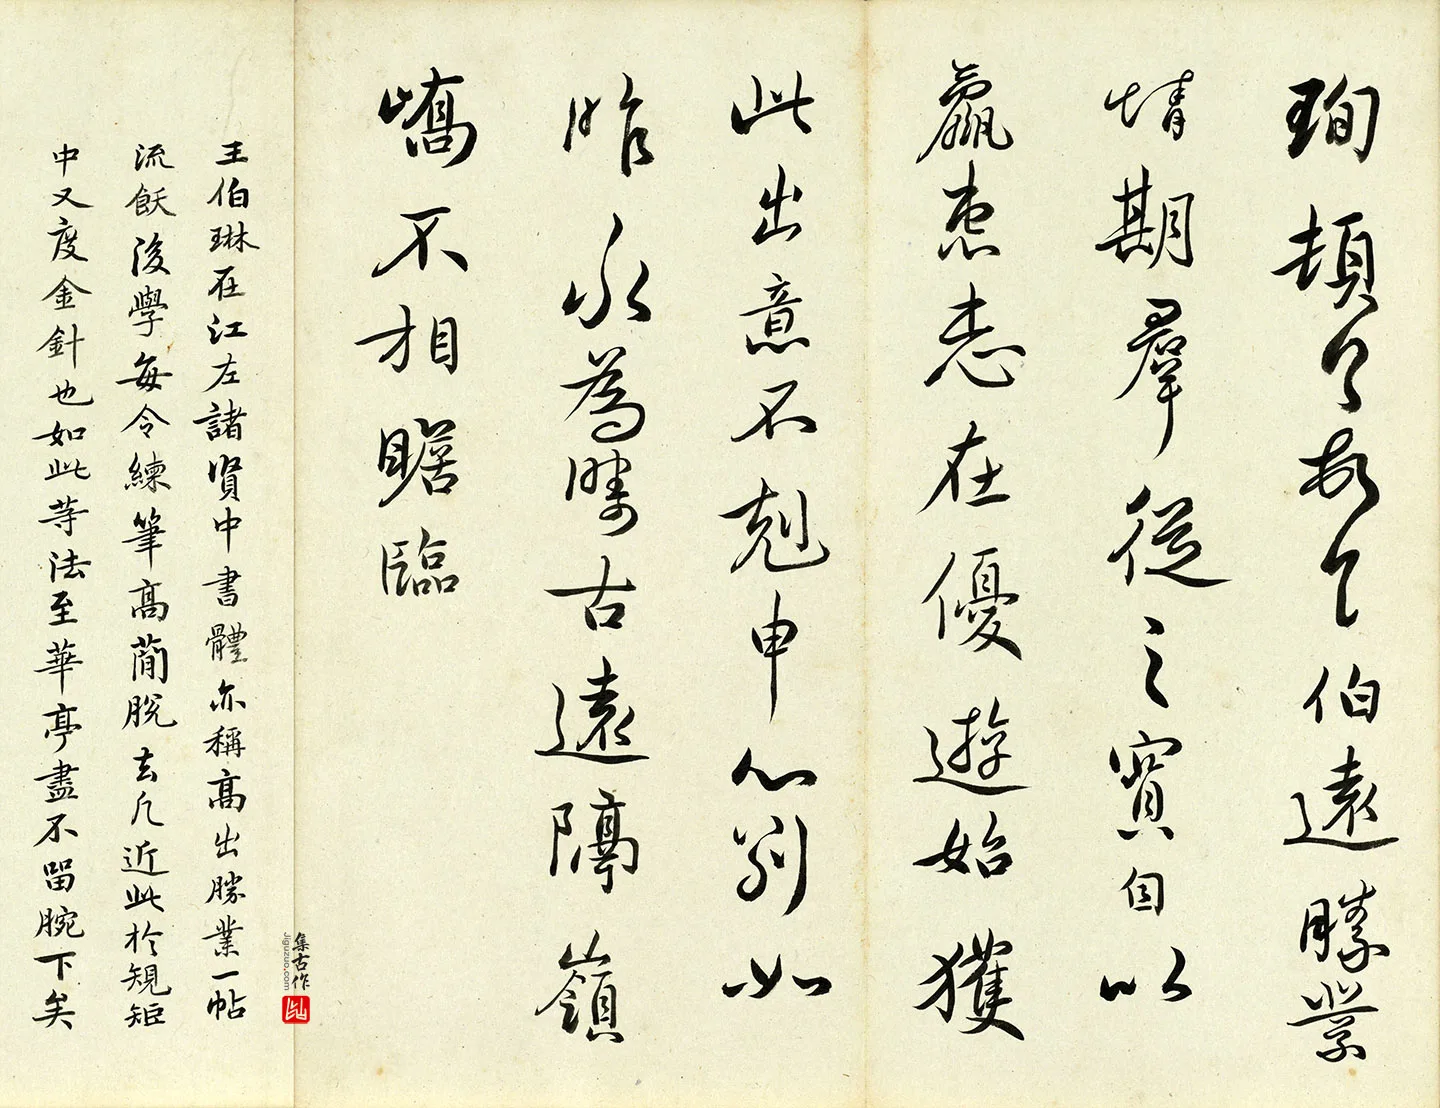 珣頓首頓首伯遠勝業
情期羣從之寶自以
羸患志在優遊始獲
此出意不剋申分別如
昨永為疇古遠隔嶺
嶠不相瞻臨
王伯琳在江左諸賢中書體亦稱高出勝業一帖
流飫後學每令練筆高蕳脫去凡近此於規矩
中又度金針也如此等法至華亭盡不留腕下矣
集古作
Jiguzuo.com